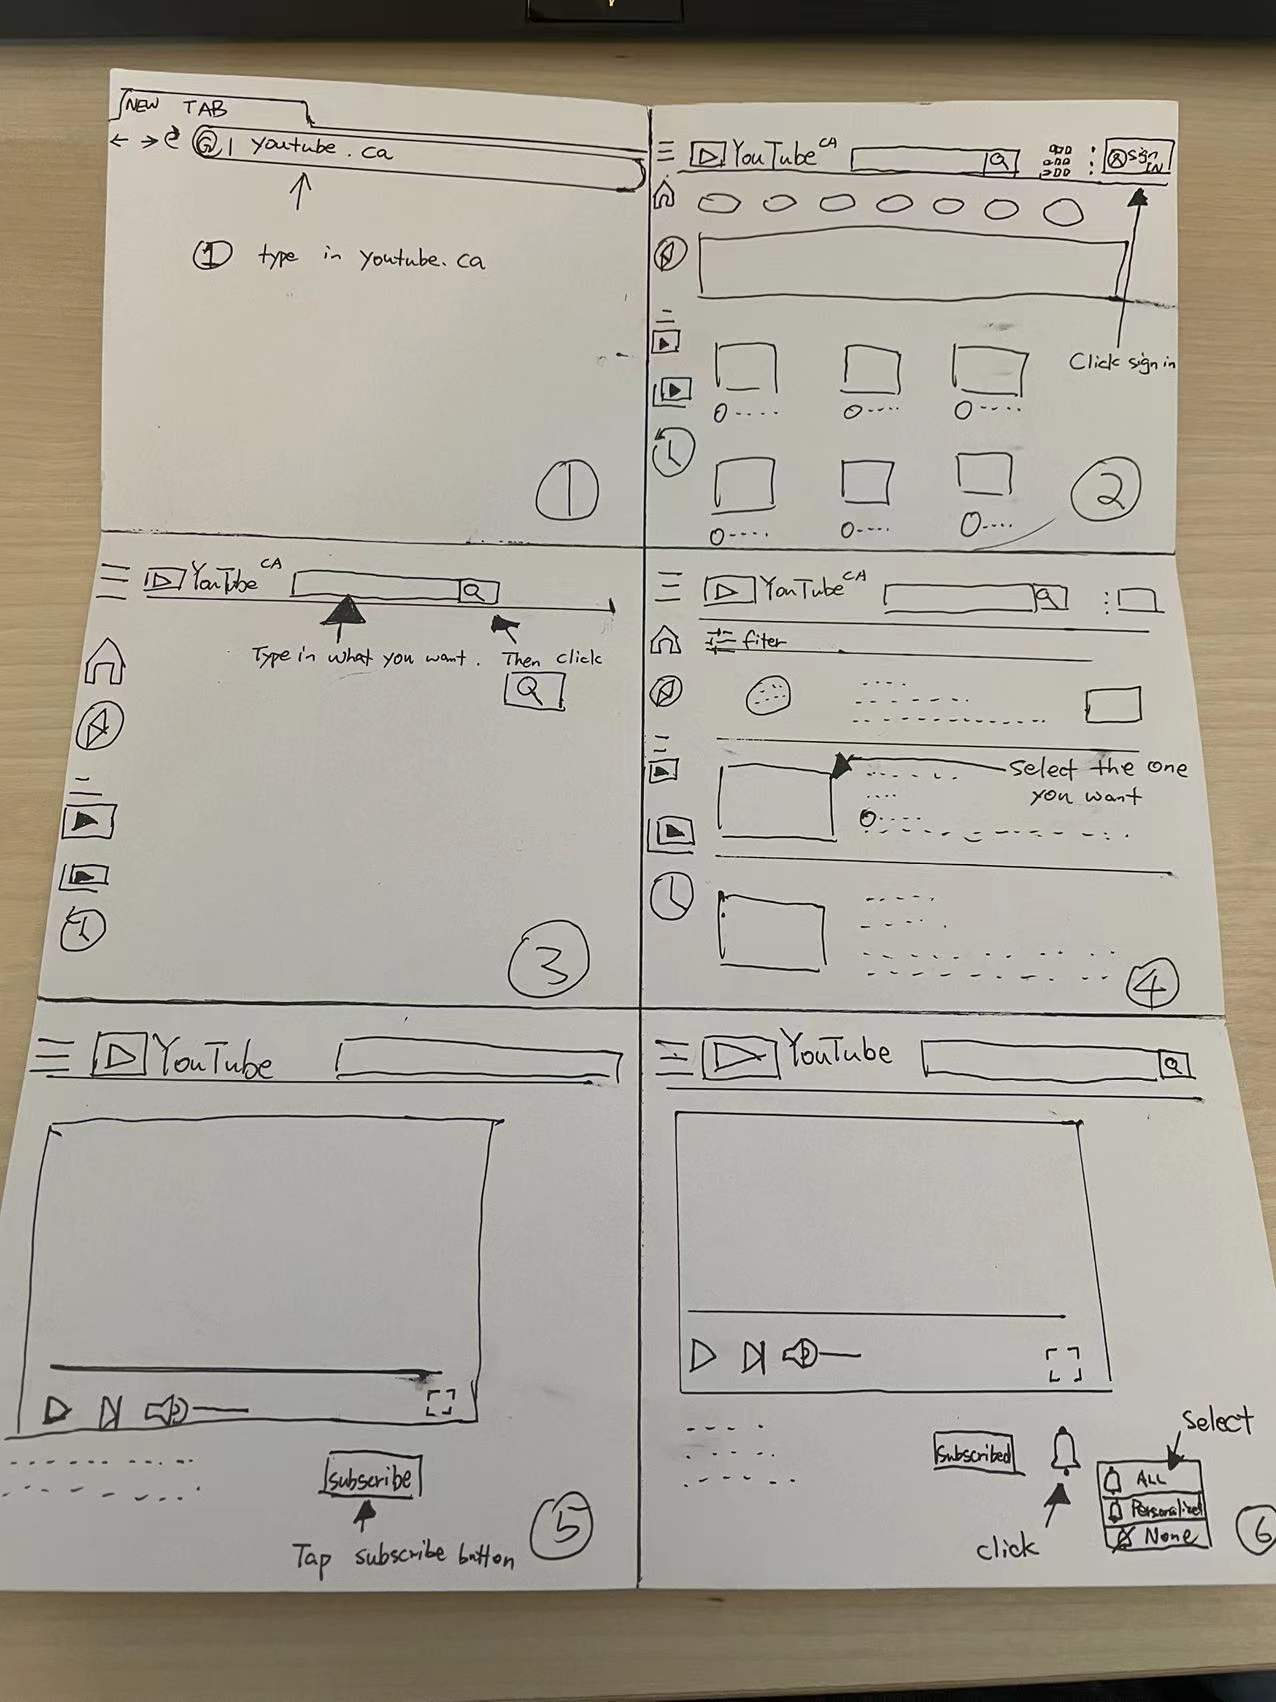 NEW TAB
youtube.ca
1 type in youtube.ca
1
YouTube CA
sign IN
Click sign in
2
YouTube CA
Type in what you want. Then click
3
YouTube CA
fiter
select the one
you want
4
YouTube
subscribe
Tap subscribe button
5
YouTube
subscribed
click
select
ALL
Personalized
None
6